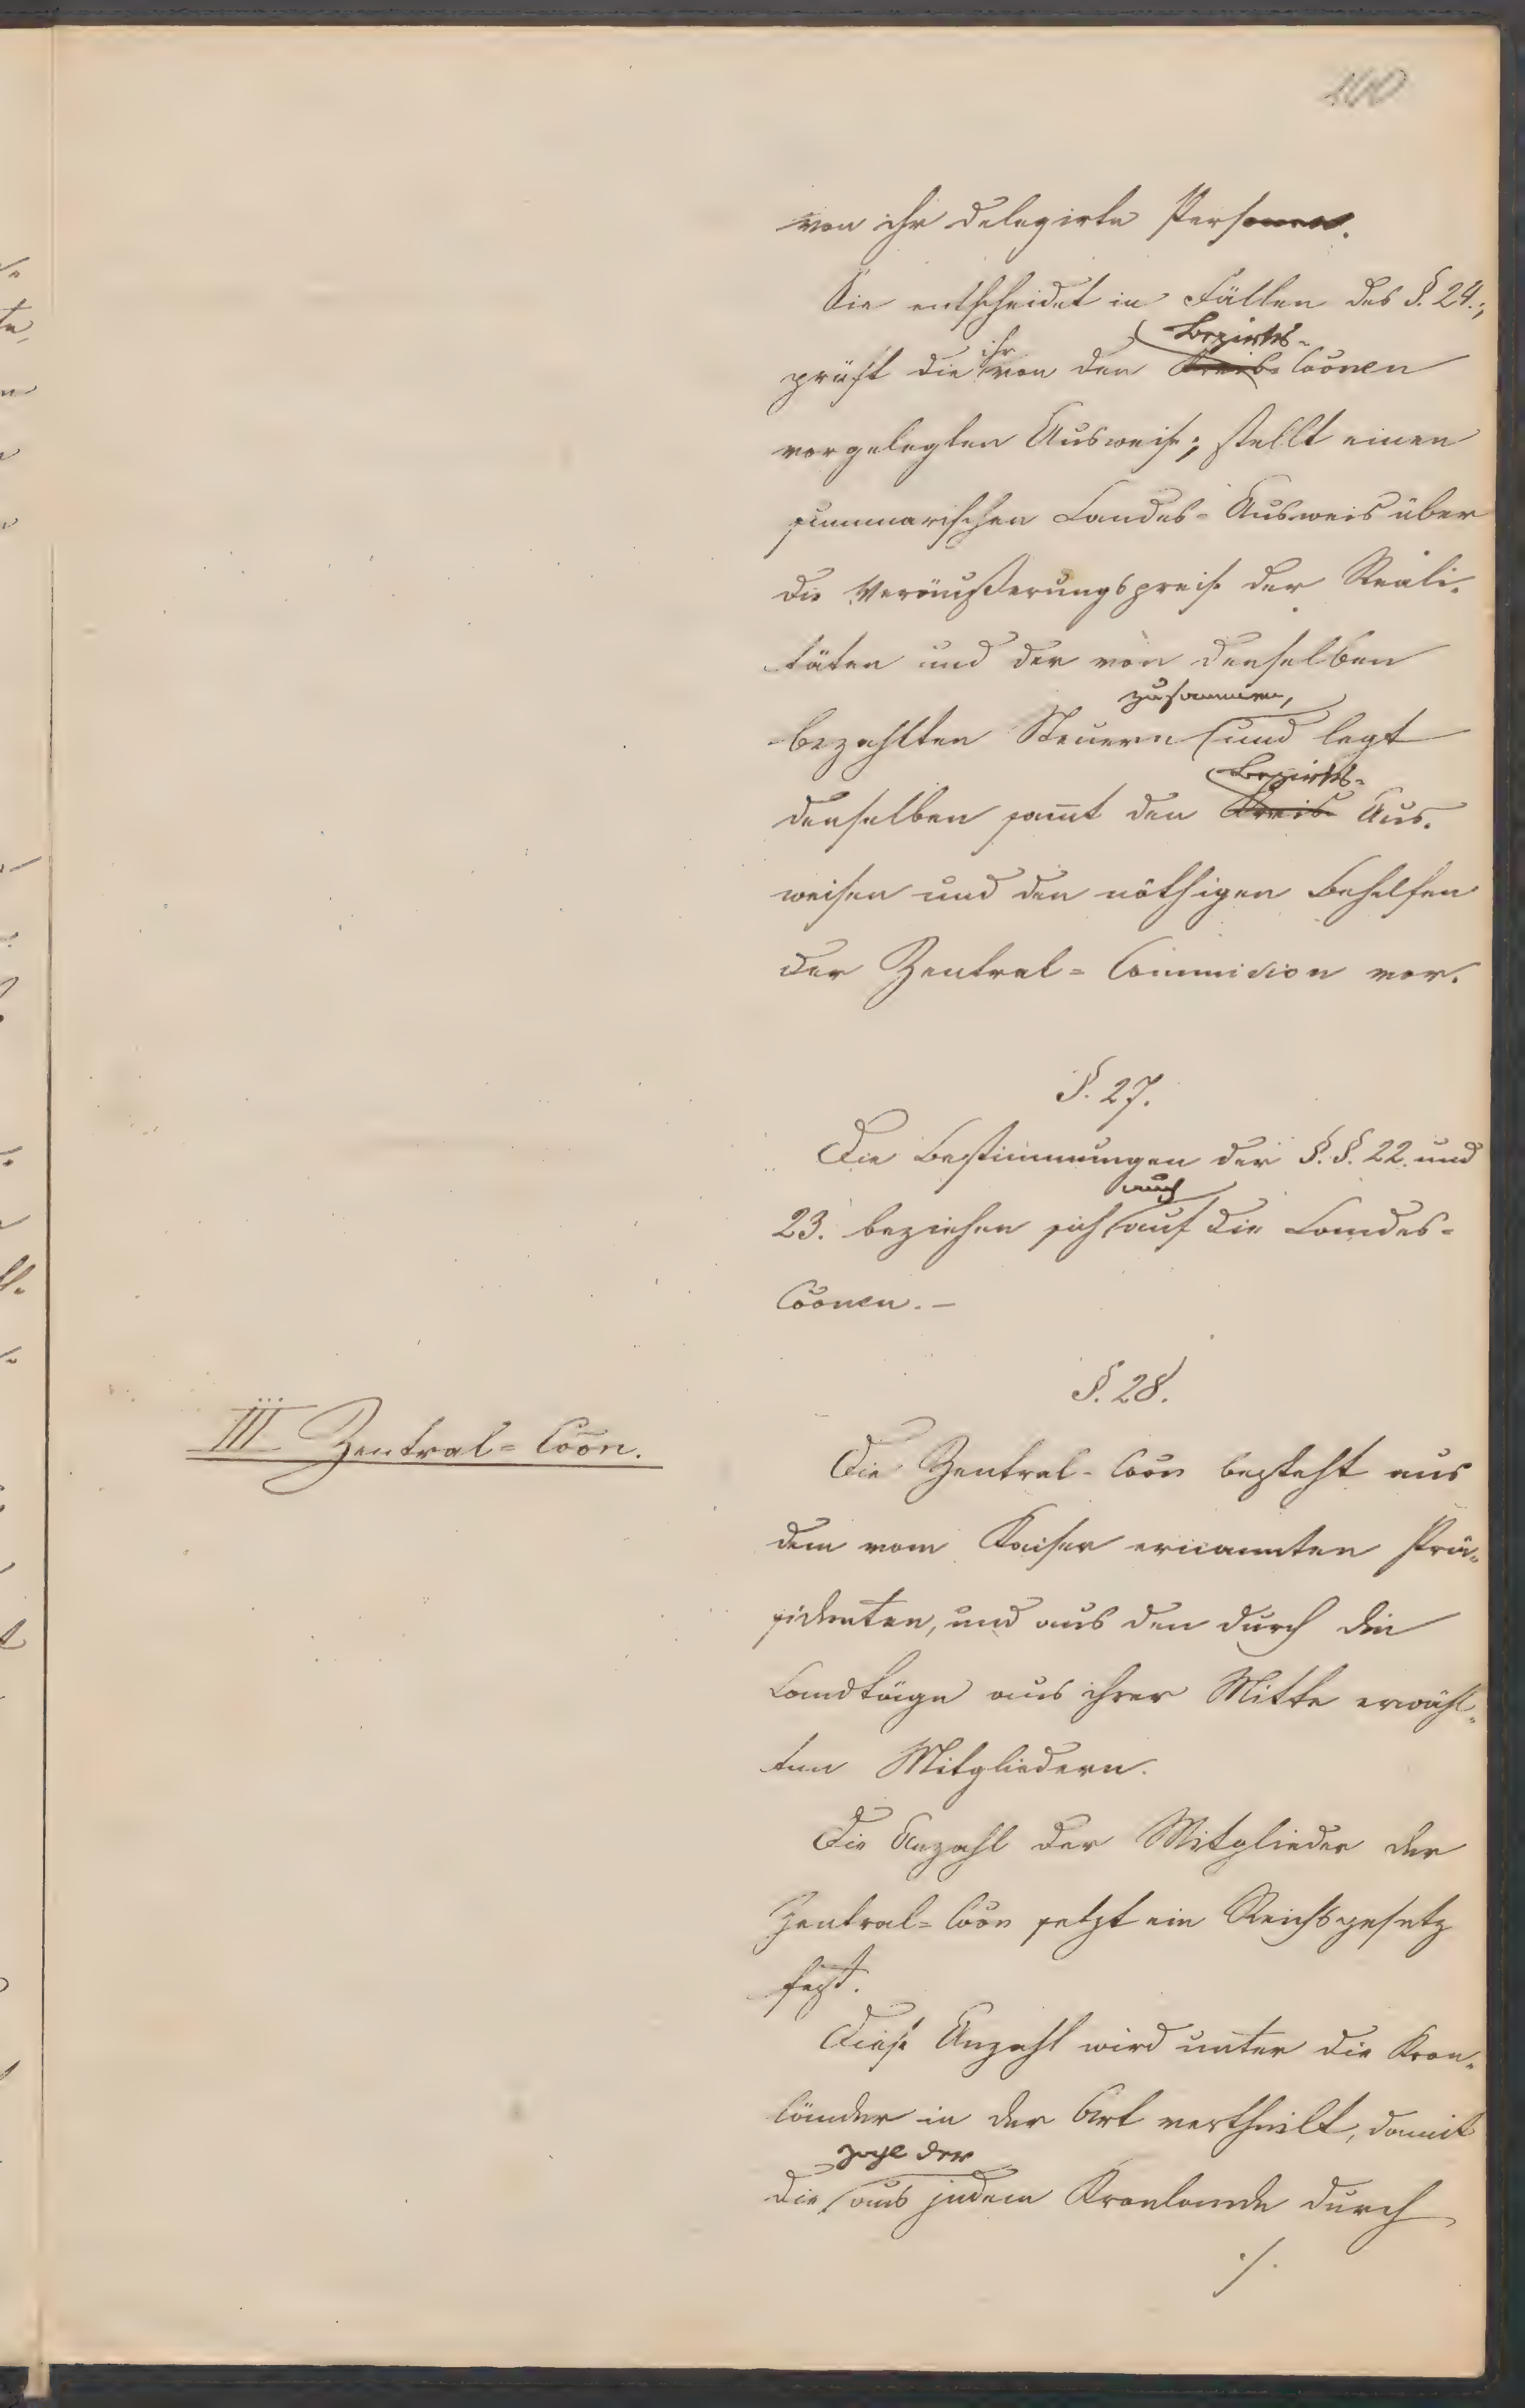 100
von ihr delegirte Personen.
Sie entscheidet in Fällen des §. 24.;
Bezirks-
ihr
prüft die von den Kreis- Coönen
vorgelegten Ausweise; stellt einen
summarischen Landes-Ausweis über
die Veräußerungspreise der Reali-
täten und der von denselben
zusammen,
bezahlten Steuern und legt
Bezirks-
denselben sam̅t den Kreis- Aus-
weisen und den nöthigen Behelfen
der Zentral-Commision vor.
§. 27.
Die Bestimmungen der §.§. 22. und
auch
23. beziehen sich auf die Landes-
Coönen.-
§. 28.
III Zentral-Coön.
Die Zentral-Coön besteht aus
dem vom Kaiser ernannten Prä-
sidenten, und aus den durch die
Landtäge aus ihrer Mitte erwähl-
ten Mitgliedern.
Die Anzahl der Mitglieder der
Zentral-Coön setzt ein Reichsgesetz
fest.
Diese Anzahl wird unter die Kron-
länder in der Art vertheilt, damit
der
die aus jedem Kronlande durch
./.